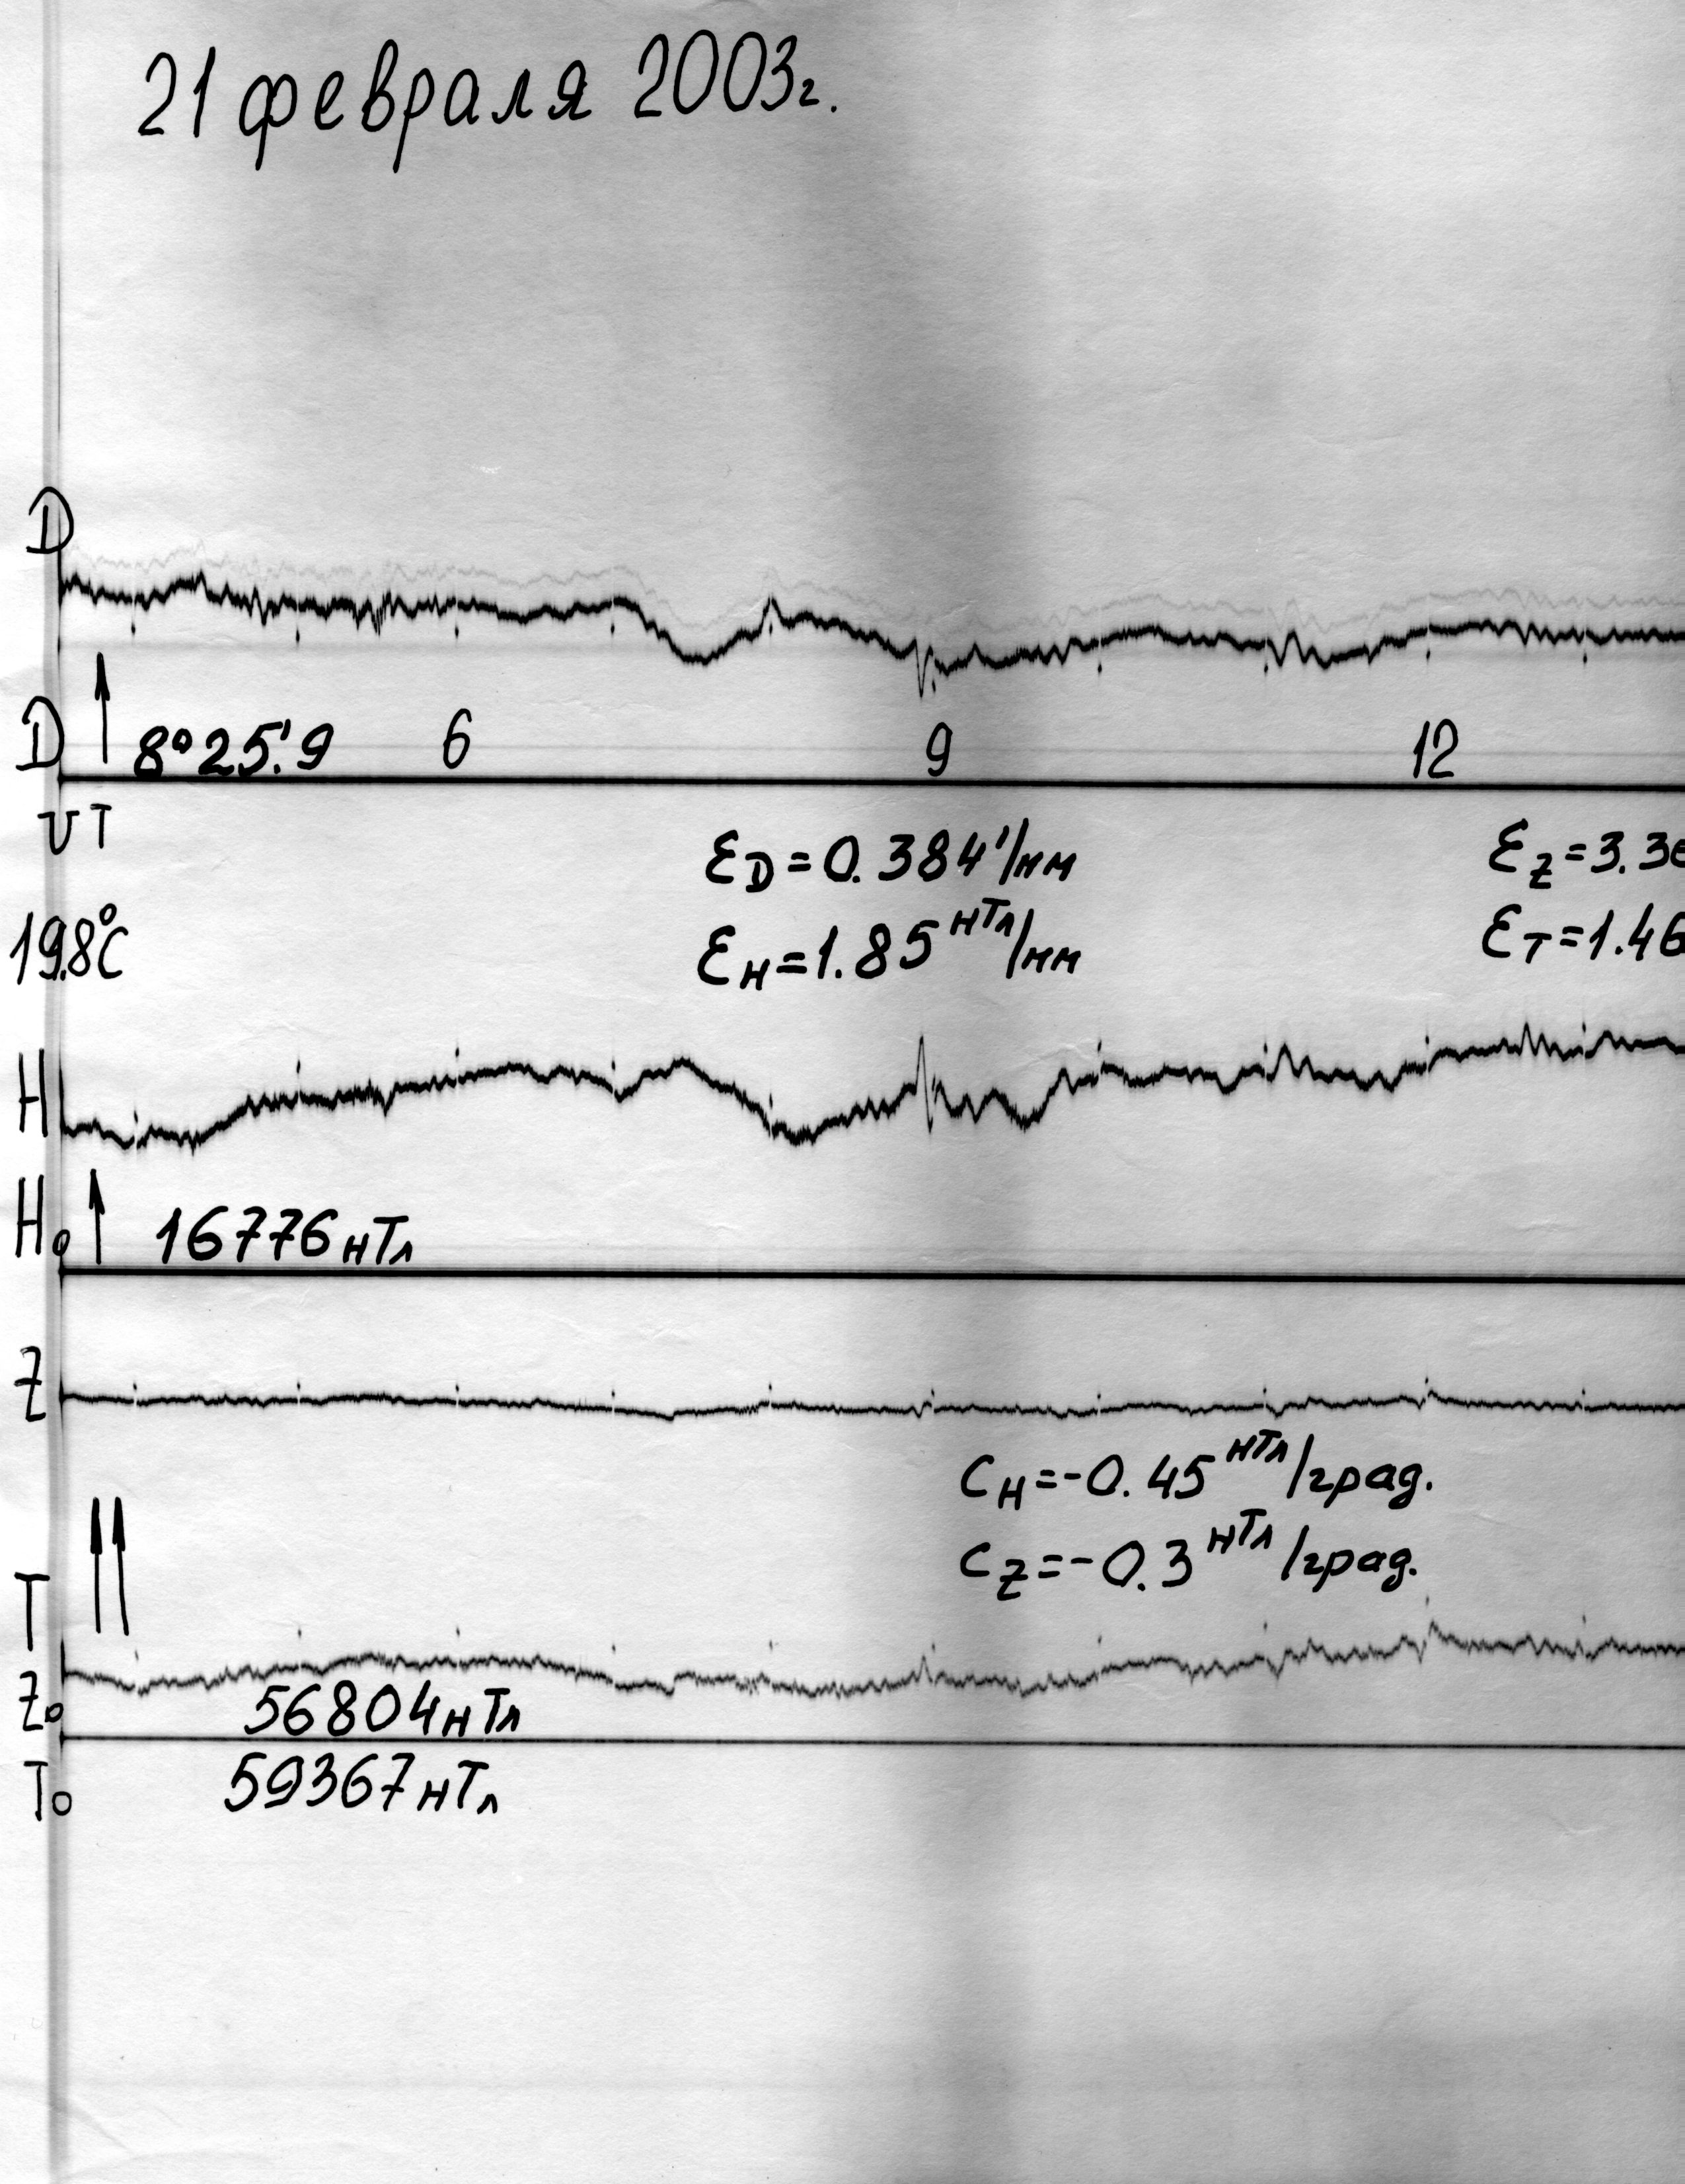 21 февраля 2003г.
D
D 8°25!9 6 9 12
UT
ε_D=0.384'/мм ε_Z=3.3
19.8°C ε_H=1.85 нТл/мм ε_T=1.4
H
H₀ 16776 нТл
Z
C_H=-0.45 нТл/град.
C_Z=-0.3 нТл/град.
T
Z₀ 56804 нТл
T₀ 59367 нТл